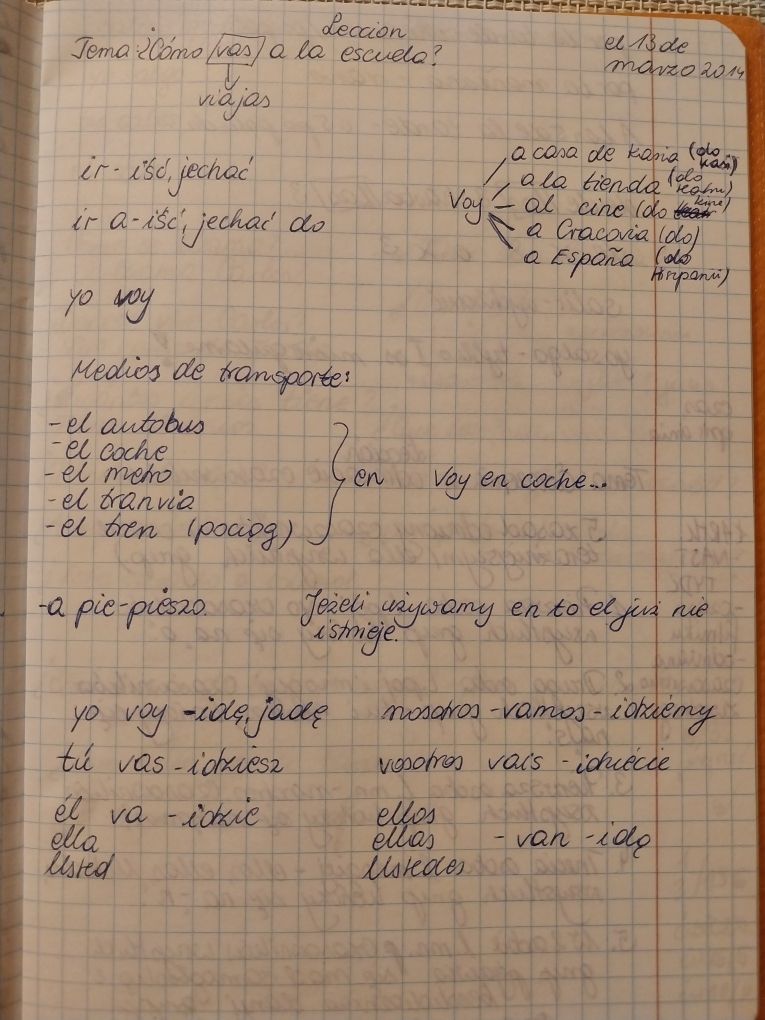 Leccion
el 13 de
Tema: ¿Cómo vas a la escuela?
marzo 2014
viajas
ir - iść, jechać
ir a - iść, jechać do
Voy
a casa de Kasia (do Kasi)
a la tienda (do
al cine (do kina)
a Cracovia (do)
a España (do Hiszpanii)
yo voy
Medios de transporte:
- el autobus
- el coche
- el metro
- el tranvia
- el tren (pociąg)
en Voy en coche...
- a pie - pieszo. Jeżeli używamy en to el już nie
istnieje.
yo voy - idę, jadę nosotros - vamos - idziemy
tú vas - idziesz vosotros vais - idziecie
él va - idzie ellos
ella ellas - van - idą
Usted Ustedes